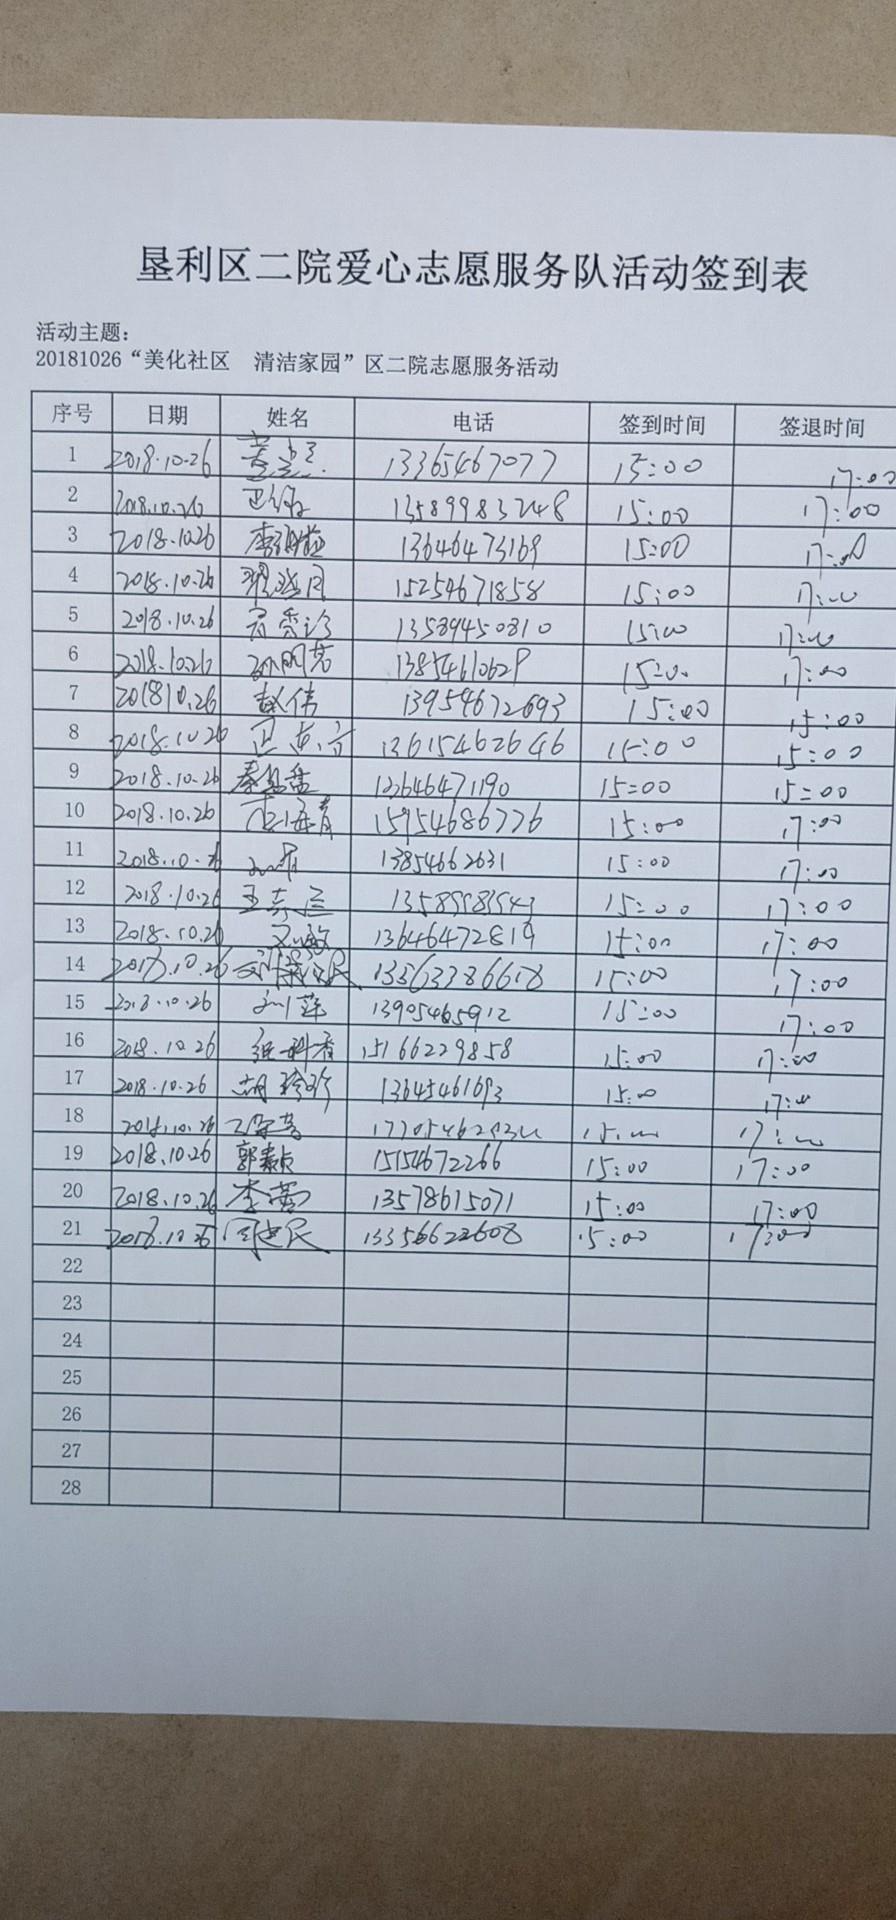 垦利区二院爱心志愿服务队活动签到表
活动主题：
20181026“美化社区 清洁家园”区二院志愿服务活动
序号 日期 姓名 电话 签到时间 签退时间
1 2018.10.26 13365467077 15:00 17:00
2 2018.10.26 13589983248 15:00 17:00
3 2018.10.26 13646473169 15:00 17:00
4 2018.10.26 15254671858 15:00 17:00
5 2018.10.26 13589450810 15:00 17:00
6 2018.10.26 孙明芳 13854610629 15:00 17:00
7 2018 10.26 赵伟 13954672693 15:00 15:00
8 2018.10.26 13615462646 15:00 15:00
9 2018.10.26 15:00 15:00
10 2018.10.26 15954686776 15:00 17:00
11 2018.10.26 13854662631 15:00 17:00
12 2018.10.26 15:00 17:00
13 2018.10.26 13646472819 15:00 17:00
14 2018.10.26 15:00 17:00
15 2018.10.26 刘萍 13905465912 15:00 17:00
16 2018.10.26 15166229858 15:00 17:00
17 2018.10.26 胡玲珍 13645461693 15:00 17:00
18 2018.10.26 15:00 17:00
19 2018.10.26 郭素贞 15154672266 15:00 17:00
20 2018.10.26 李蕾 13578615071 15:00 17:00
21 2018.10.26 周建民 13356622608 15:00 17:00
22
23
24
25
26
27
28